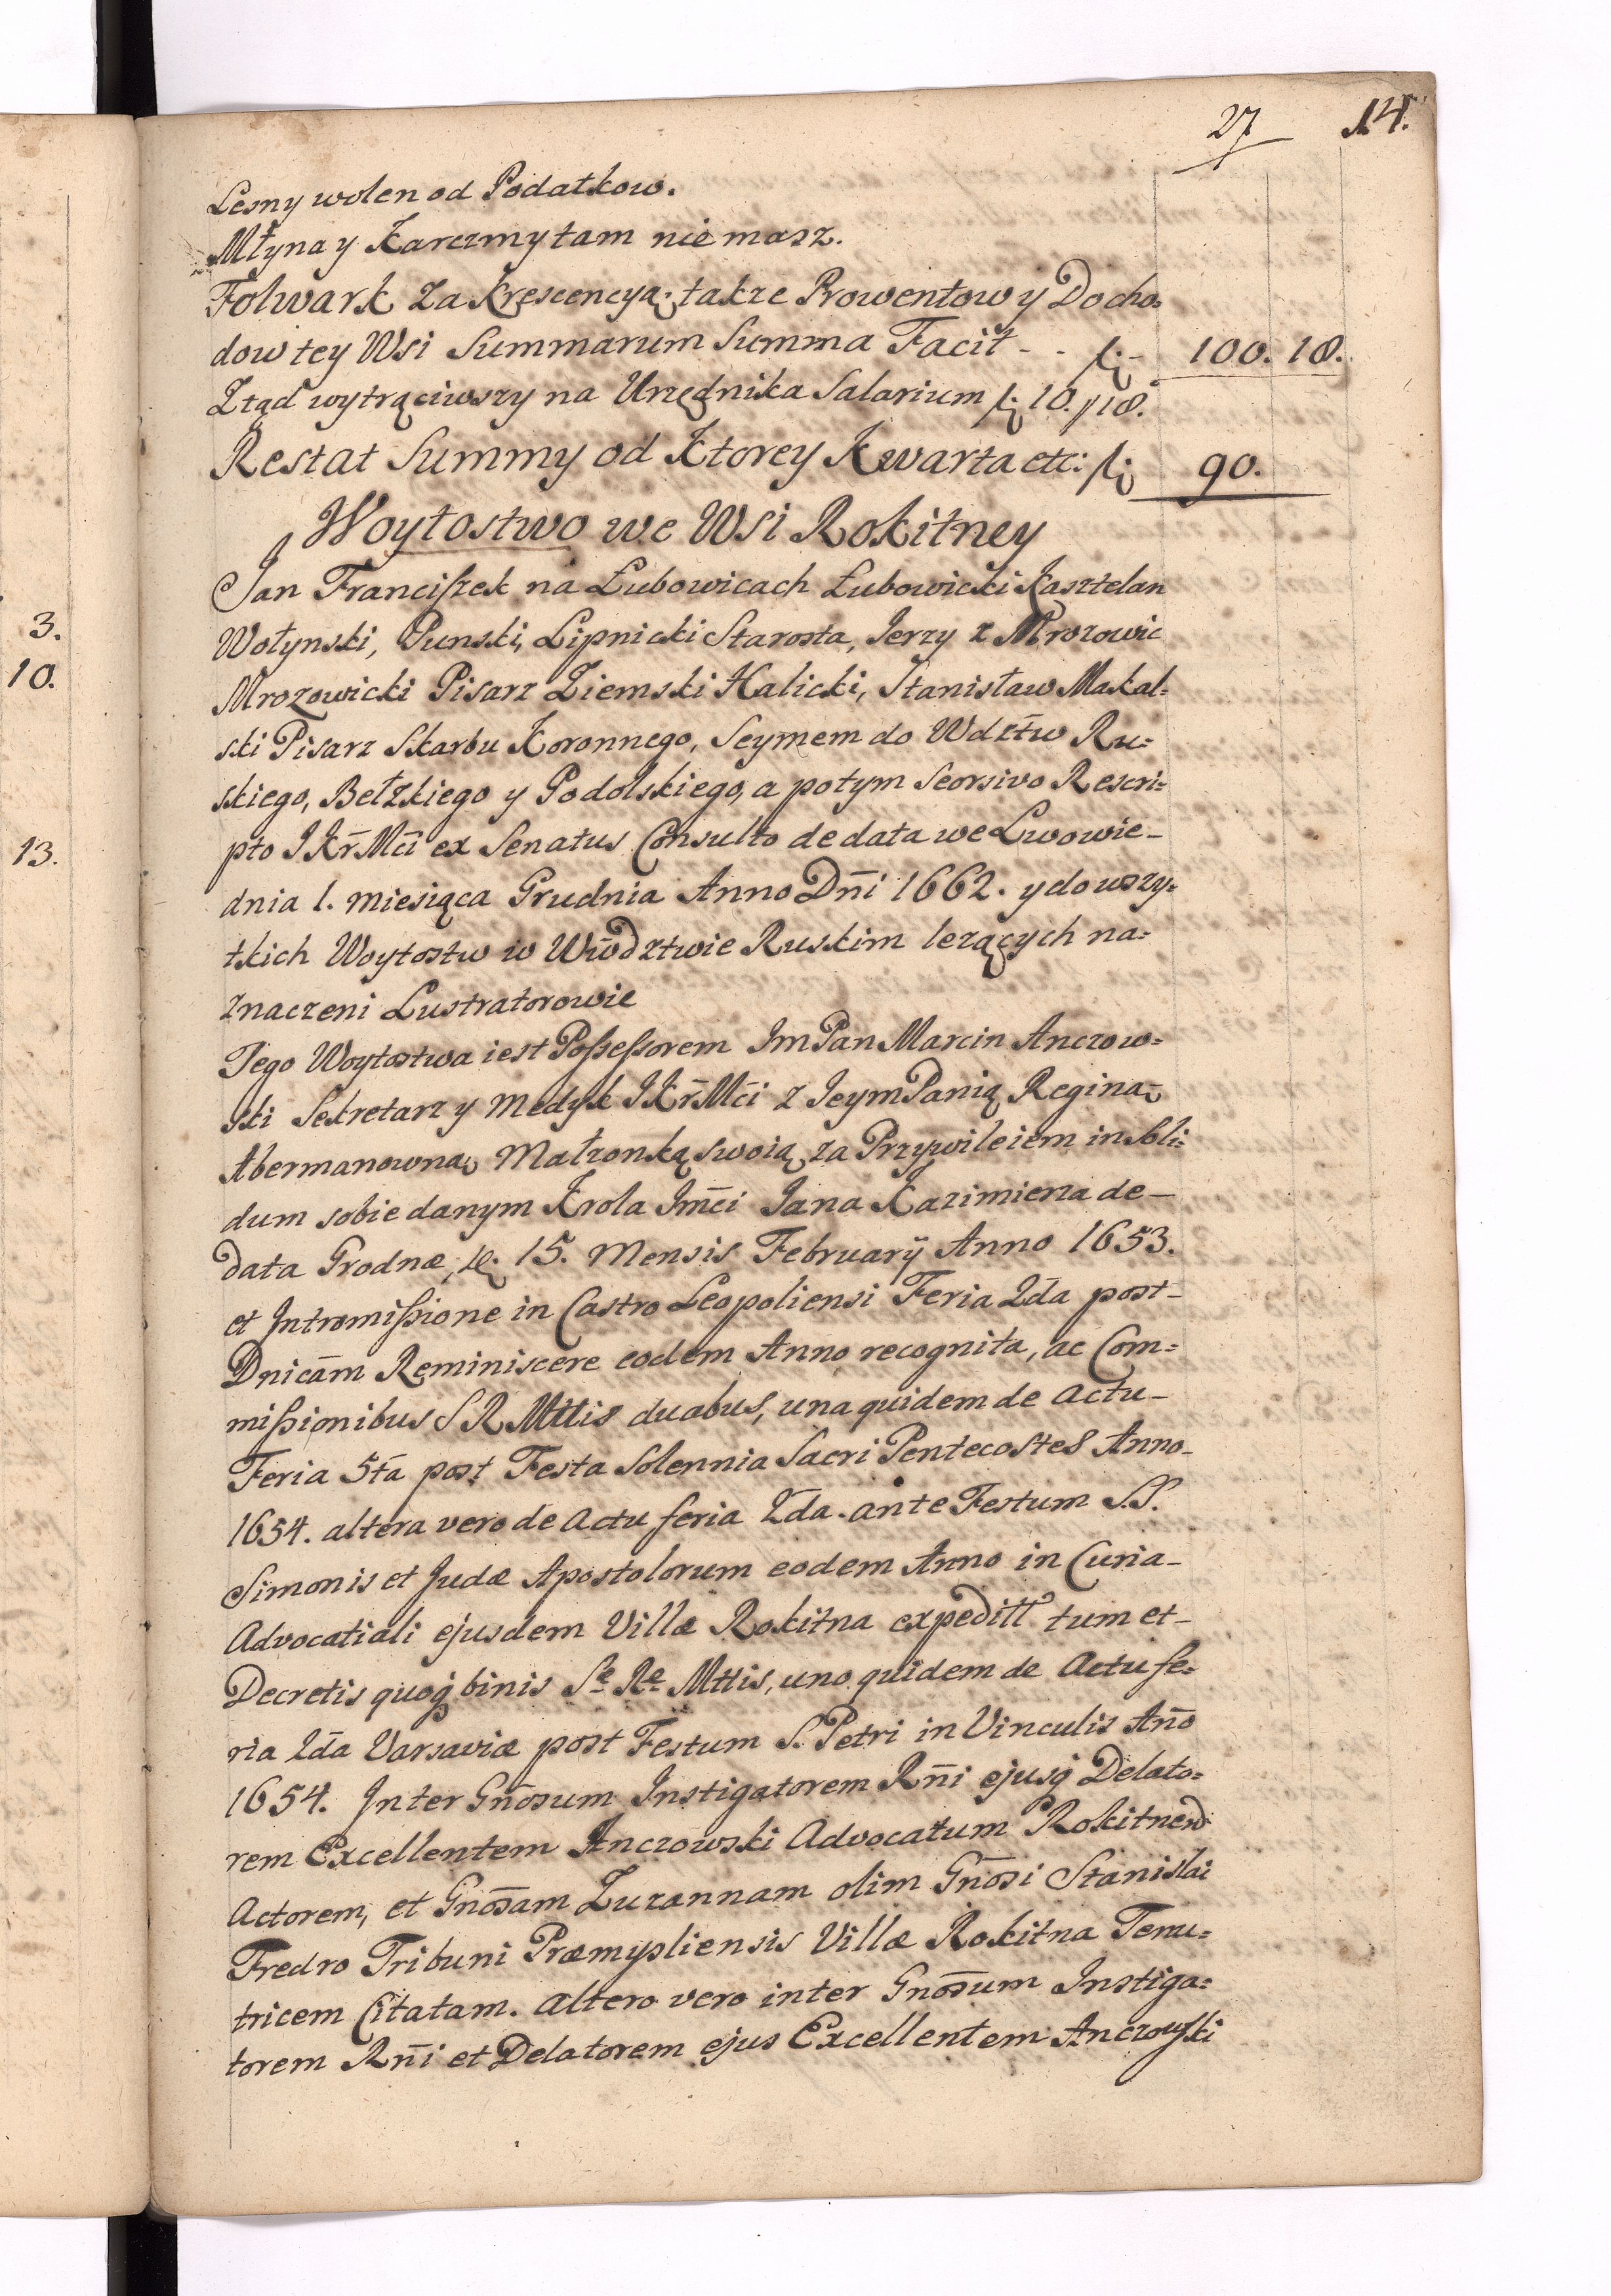 27 14.
Lesny wolen od Podatkow.
Młyna y Karczmy tam nie masz.
Folwark za Krescencyą, także Prowentow y Docho=
dow tey Wsi Summarum Summa Facit - - f: - 100. 18.
Ztąd wytrąciwszy na Urzędnika Salarium f: 10. / 18.
Restat Summy od Ktorey Kwarta etc: f: 90.
Woytostwo we Wsi Rokitney
Jan Franciszek na Łubowicach Łubowicki Kasztelan
Wołynski, Punski, Lipnicki Starosta, Jerzy z Mrozowic
Mrozowicki Pisarz Ziemski Halicki, Stanisław Makal=
ski Pisarz Skarbu Koronnego, Seymem do Wdztw Ru=
skiego, Bełzkiego y Podolskiego, a potym Seorsivo Rescri=
pto J Kr Mci ex Senatus Consulto de data we Lwowie-
dnia 1. miesiąca Grudnia Anno Dni 1662. y do wszy=
tkich Woytostw w Wwdztwie Ruskim leżących na=
znaczeni Lustratorowie
Tego Woytostwa iest Possessorem Jm Pan Marcin Anczow=
ski Sekretarz y Medyk J Kr Mci z Jeym Panią Reginą-
Abermanowną Małżonką swoią za Przywileiem in soli=
dum sobie danym Krola Jmci Jana Kazimierza de-
data Grodnæ, D. 15. Mensis Februarij Anno 1653.
et Intromissione in Castro Leopoliensi Feria 2da post-
Dnicam Reminiscere eodem Anno recognita, ac Com=
missionibus S R Mttis duabus, una quidem de actu-
Feria 5ta post Festa Solennia Sacri Pentecostes Anno-
1654. altera vero de Actu feria 2da. ante Festum S.S.
Simonis et Judæ Apostolorum eodem Anno in Curia-
Advocatiali ejusdem Villæ Rokitna expeditt tum et-
Decretis quoq binis Se Re Mttis, uno quidem de Actu fe=
ria 2da Varsaviæ post Festum S. Petri in Vinculis Ano
1654. Inter Gnosum Instigatorem Rni ejusq Delato=
rem Excellentem Anczowski Advocatum Rokitnen
Actorem, et Gnosam Zuzannam olim Gnosi Stanislai
Fredro Tribuni Præmysliensis Villæ Rokitna Tenu=
tricem Citatam. altero vero inter Gnosum Instiga=
torem Rni et Delatorem ejus Excellentem Anczowski
3.
10.
13.